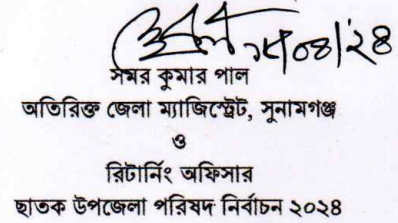 সমর কুমার পাল
অতিরিক্ত জেলা ম্যাজিস্ট্রেট, সুনামগঞ্জ
ও
রিটার্নিং অফিসার
ছাতক উপজেলা পরিষদ নির্বাচন ২০২৪